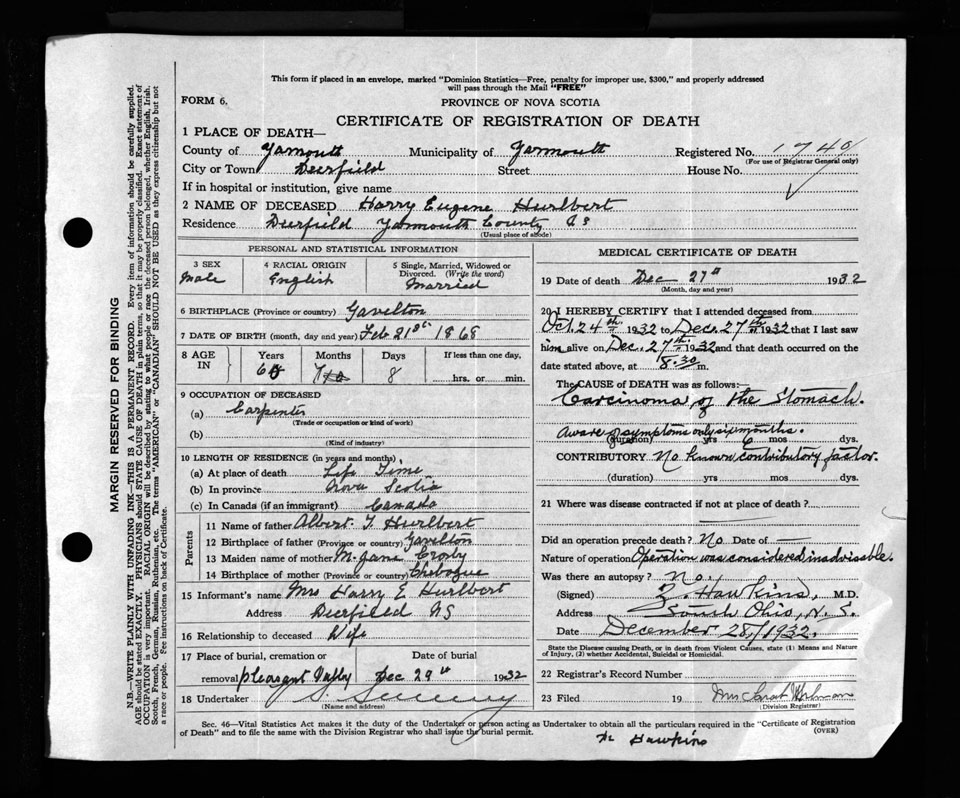 This form if placed in an envelope, marked "Dominion Statistics—Free, penalty for improper use, $300," and properly addressed
will pass through the Mail "FREE"
FORM 6.
PROVINCE OF NOVA SCOTIA
CERTIFICATE OF REGISTRATION OF DEATH
1 PLACE OF DEATH—
County of Yarmouth Municipality of Yarmouth Registered No. 1740
(For use of Registrar General only)
City or Town Deerfield Street House No.
If in hospital or institution, give name
2 NAME OF DECEASED Harry Eugene Hurlbert
Residence Deerfield Yarmouth County NS
(Usual place of abode)
PERSONAL AND STATISTICAL INFORMATION
3 SEX 4 RACIAL ORIGIN 5 Single, Married, Widowed or Divorced. (Write the word)
Male English Married
6 BIRTHPLACE (Province or country) Gavelton
7 DATE OF BIRTH (month, day and year) Feb 1868
8 AGE IN Years Months Days If less than one day,
8 hrs. or min.
9 OCCUPATION OF DECEASED
(a) Carpenter
(Trade or occupation or kind of work)
(b)
(Kind of industry)
10 LENGTH OF RESIDENCE (in years and months)
(a) At place of death Life Time
(b) In province Nova Scotia
(c) In Canada (if an immigrant) Canada
Parents
11 Name of father Albert T Hurlbert
12 Birthplace of father (Province or country) Gavelton
13 Maiden name of mother M. Jane Crosby
14 Birthplace of mother (Province or country) Chebogue
15 Informant's name Mrs Harry E Hurlbert
Address Deerfield NS
16 Relationship to deceased Wife
17 Place of burial, cremation or removal Date of burial
Pleasant Valley Dec 29th 1932
18 Undertaker S. Sweeny
(Name and address)
MEDICAL CERTIFICATE OF DEATH
19 Date of death Dec 27th 1932
(Month, day and year)
20 I HEREBY CERTIFY that I attended deceased from
Oct. 24th 1932 to Dec. 27th 1932 that I last saw
him alive on Dec. 27th 1932 and that death occurred on the
date stated above, at 8.30 m.
The CAUSE OF DEATH was as follows:
Carcinoma of the Stomach.
Aware of symptoms only six months.
(duration) yrs 6 mos dys.
CONTRIBUTORY No known contributory factor.
(duration) yrs. mos. dys.
21 Where was disease contracted if not at place of death?
Did an operation precede death? No Date of —
Nature of operation Operation was considered inadvisable.
Was there an autopsy? No.
(Signed) Z. Hawkins, M.D.
Address South Ohio, N.S.
Date December 28, 1932.
State the Disease causing Death, or in death from Violent Causes, state (1) Means and Nature
of Injury, (2) whether Accidental, Suicidal or Homicidal.
22 Registrar's Record Number
23 Filed 19 Mrs Sarah
(Division Registrar)
Sec. 46—Vital Statistics Act makes it the duty of the Undertaker or person acting as Undertaker to obtain all the particulars required in the "Certificate of Registration
of Death" and to file the same with the Division Registrar who shall issue the burial permit.
(OVER)
Hawkins
MARGIN RESERVED FOR BINDING
N.B.—WRITE PLAINLY WITH UNFADING INK—THIS IS A PERMANENT RECORD. Every item of information should be carefully supplied.
AGE should be stated EXACTLY. PHYSICIANS should STATE CAUSE OF DEATH in plain terms, so that it may be properly classified. Exact statement of
OCCUPATION is very important. RACIAL ORIGIN will be described by stating to what people or race the deceased person belonged, whether English, Irish,
Scotch, French, German, Russian, Ruthenian, etc. The terms "AMERICAN" or "CANADIAN" SHOULD NOT BE USED as they express citizenship but not
a race or people. See instructions on back of Certificate.